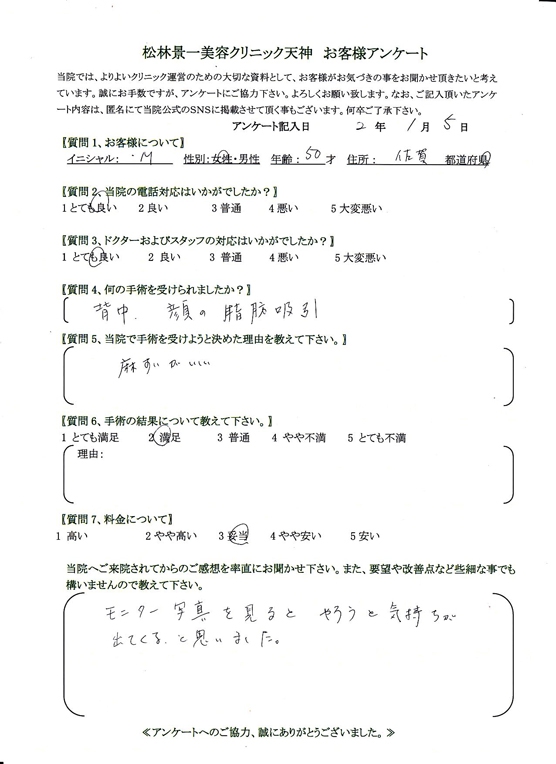 松林景一美容クリニック天神 お客様アンケート
当院では、よりよいクリニック運営のための大切な資料として、お客様がお気づきの事をお聞かせ頂きたいと考え
ています。誠にお手数ですが、アンケートにご協力下さい。よろしくお願い致します。なお、ご記入頂いたアンケ
ート内容は、匿名にて当院公式のSNSに掲載させて頂く事もございます。何卒ご了承下さい。
アンケート記入日 2 年 1 月 5 日
【質問1、お客様について】
イニシャル: ・M 性別:女性・男性 年齢:50才 住所: 佐賀 都道府県
【質問2、当院の電話対応はいかがでしたか?】
1とても良い 2良い 3普通 4悪い 5大変悪い
【質問3、ドクターおよびスタッフの対応はいかがでしたか?】
1とても良い 2良い 3普通 4悪い 5大変悪い
【質問4、何の手術を受けられましたか?】
背中、顔の脂肪吸引
【質問5、当院で手術を受けようと決めた理由を教えて下さい。】
麻すいがいい
【質問6、手術の結果について教えて下さい。】
1とても満足 2満足 3普通 4やや不満 5とても不満
理由:
【質問7、料金について】
1高い 2やや高い 3妥当 4やや安い 5安い
当院へご来院されてからのご感想を率直にお聞かせ下さい。また、要望や改善点など些細な事でも
構いませんので教えて下さい。
モニター写真を見ると やろうと気持ちが
出てくると思いました。
≪アンケートへのご協力、誠にありがとうございました。≫